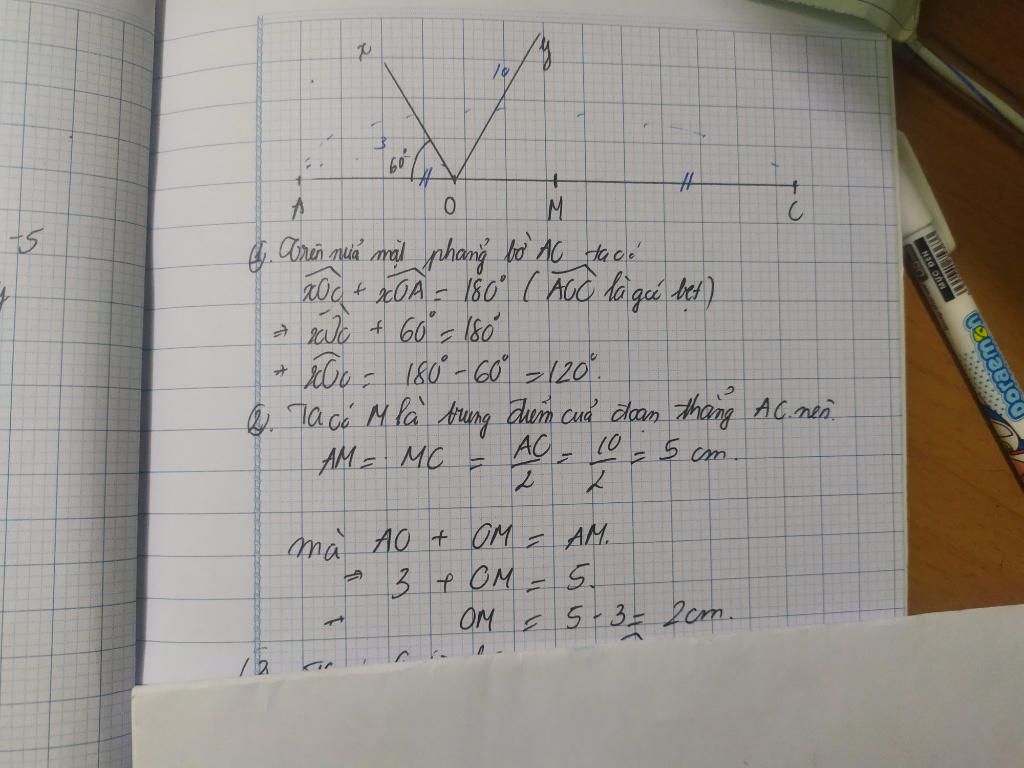 x
y
10
3
60°
A O M C
-5
1). Trên nửa mặt phẳng bờ AC ta có:
xOC + xOA = 180° (AOC là góc bẹt)
⇒ xOC + 60° = 180°
→ xOC = 180° - 60° = 120°.
2). Ta có M là trung điểm của đoạn thẳng AC nên.
AM = MC = AC/2 = 10/2 = 5 cm.
mà AO + OM = AM.
⇒ 3 + OM = 5.
→ OM = 5 - 3 = 2cm.